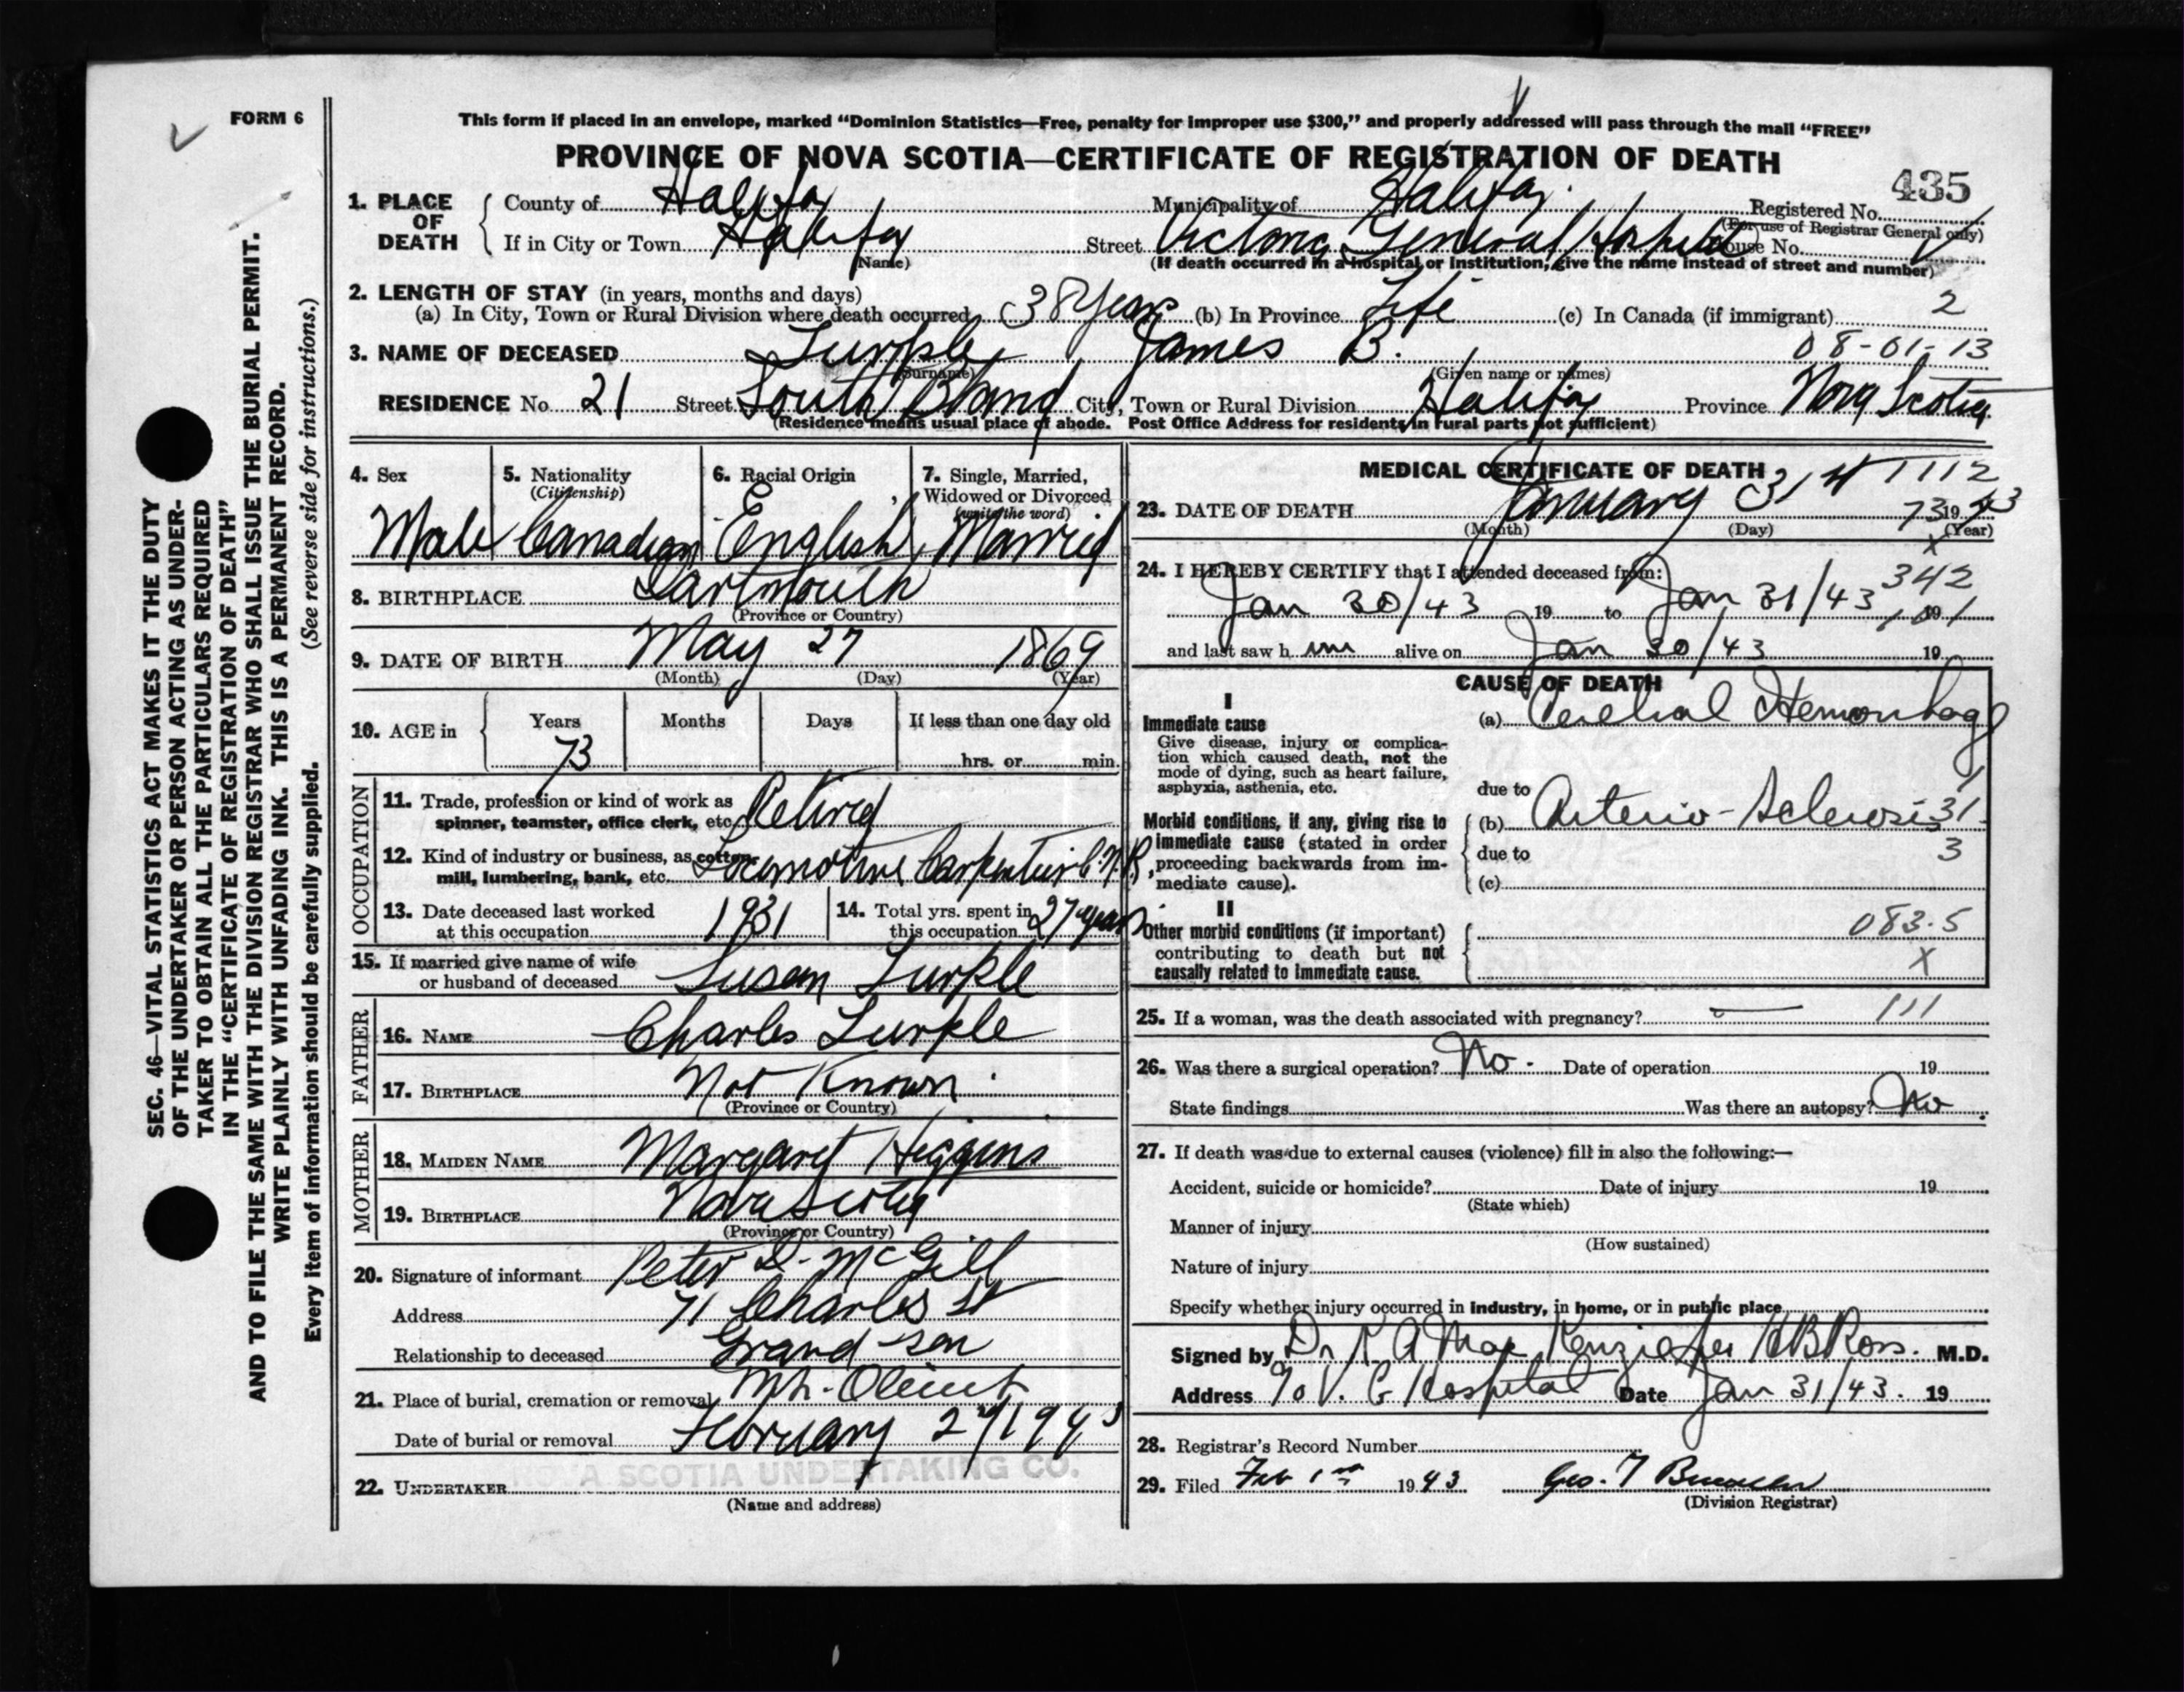 FORM 6
This form if placed in an envelope, marked “Dominion Statistics—Free, penalty for improper use $300,” and properly addressed will pass through the mail “FREE”
PROVINCE OF NOVA SCOTIA—CERTIFICATE OF REGISTRATION OF DEATH
435
1. PLACE OF DEATH
County of Halifax Municipality of Halifax. Registered No.
(For use of Registrar General only)
If in City or Town Halifax Street Victoria General Hospital House No.
(Name) (If death occurred in a hospital or institution, give the name instead of street and number)
2. LENGTH OF STAY (in years, months and days)
(a) In City, Town or Rural Division where death occurred 38 Years (b) In Province Life (c) In Canada (if immigrant) 2
3. NAME OF DECEASED Turple, James B. 08-01-13
(Surname) (Given name or names)
RESIDENCE No. 21 Street South Bland City, Town or Rural Division Halifax Province Nova Scotia
(Residence means usual place of abode. Post Office Address for residents in rural parts not sufficient)
4. Sex Male
5. Nationality (Citizenship) Canadian
6. Racial Origin English
7. Single, Married, Widowed or Divorced (write the word) Married
8. BIRTHPLACE Dartmouth
(Province or Country)
9. DATE OF BIRTH May 27 1869
(Month) (Day) (Year)
10. AGE in Years Months Days If less than one day old
73 hrs. or min.
OCCUPATION
11. Trade, profession or kind of work as spinner, teamster, office clerk, etc. Retired
12. Kind of industry or business, as cotton mill, lumbering, bank, etc. Locomotive Carpenter C.N.R.
13. Date deceased last worked at this occupation 1931
14. Total yrs. spent in this occupation 27 years
15. If married give name of wife or husband of deceased Susan Turple
FATHER
16. NAME Charles Turple
17. BIRTHPLACE Not Known
(Province or Country)
MOTHER
18. MAIDEN NAME Margaret Higgins
19. BIRTHPLACE Nova Scotia
(Province or Country)
20. Signature of informant Peter D. McGill
Address 71 Charles St
Relationship to deceased Grand-son
21. Place of burial, cremation or removal Mt. Olivet
Date of burial or removal February 2nd/1943
NOVA SCOTIA UNDERTAKING CO.
22. UNDERTAKER
(Name and address)
MEDICAL CERTIFICATE OF DEATH
1112
23. DATE OF DEATH January 31st 73 1943
(Month) (Day) (Year)
x
24. I HEREBY CERTIFY that I attended deceased from: 342
Jan 30/43 19 to Jan 31/43 19
and last saw h im alive on Jan 30/43 19
CAUSE OF DEATH
I
Immediate cause (a) Cerebral Hemorrhage
Give disease, injury or complication which caused death, not the mode of dying, such as heart failure, asphyxia, asthenia, etc.
due to
1
Morbid conditions, if any, giving rise to immediate cause (stated in order proceeding backwards from immediate cause).
(b) Arterio-Sclerosis 31
due to 3
(c)
II
Other morbid conditions (if important) contributing to death but not causally related to immediate cause.
083.5
X
25. If a woman, was the death associated with pregnancy? — 111
26. Was there a surgical operation? No. Date of operation 19
State findings Was there an autopsy? No.
27. If death was due to external causes (violence) fill in also the following:—
Accident, suicide or homicide? Date of injury 19
(State which)
Manner of injury
(How sustained)
Nature of injury
Specify whether injury occurred in industry, in home, or in public place
Signed by Dr K A MacKenzie per HB Ross. M.D.
Address % V. G Hospital Date Jan 31/43. 19
28. Registrar's Record Number
29. Filed Feb 1 1943 Geo. T
(Division Registrar)
SEC. 46—VITAL STATISTICS ACT MAKES IT THE DUTY
OF THE UNDERTAKER OR PERSON ACTING AS UNDER-
TAKER TO OBTAIN ALL THE PARTICULARS REQUIRED
IN THE “CERTIFICATE OF REGISTRATION OF DEATH”
AND TO FILE THE SAME WITH THE DIVISION REGISTRAR WHO SHALL ISSUE THE BURIAL PERMIT.
WRITE PLAINLY WITH UNFADING INK. THIS IS A PERMANENT RECORD.
Every item of information should be carefully supplied. (See reverse side for instructions.)